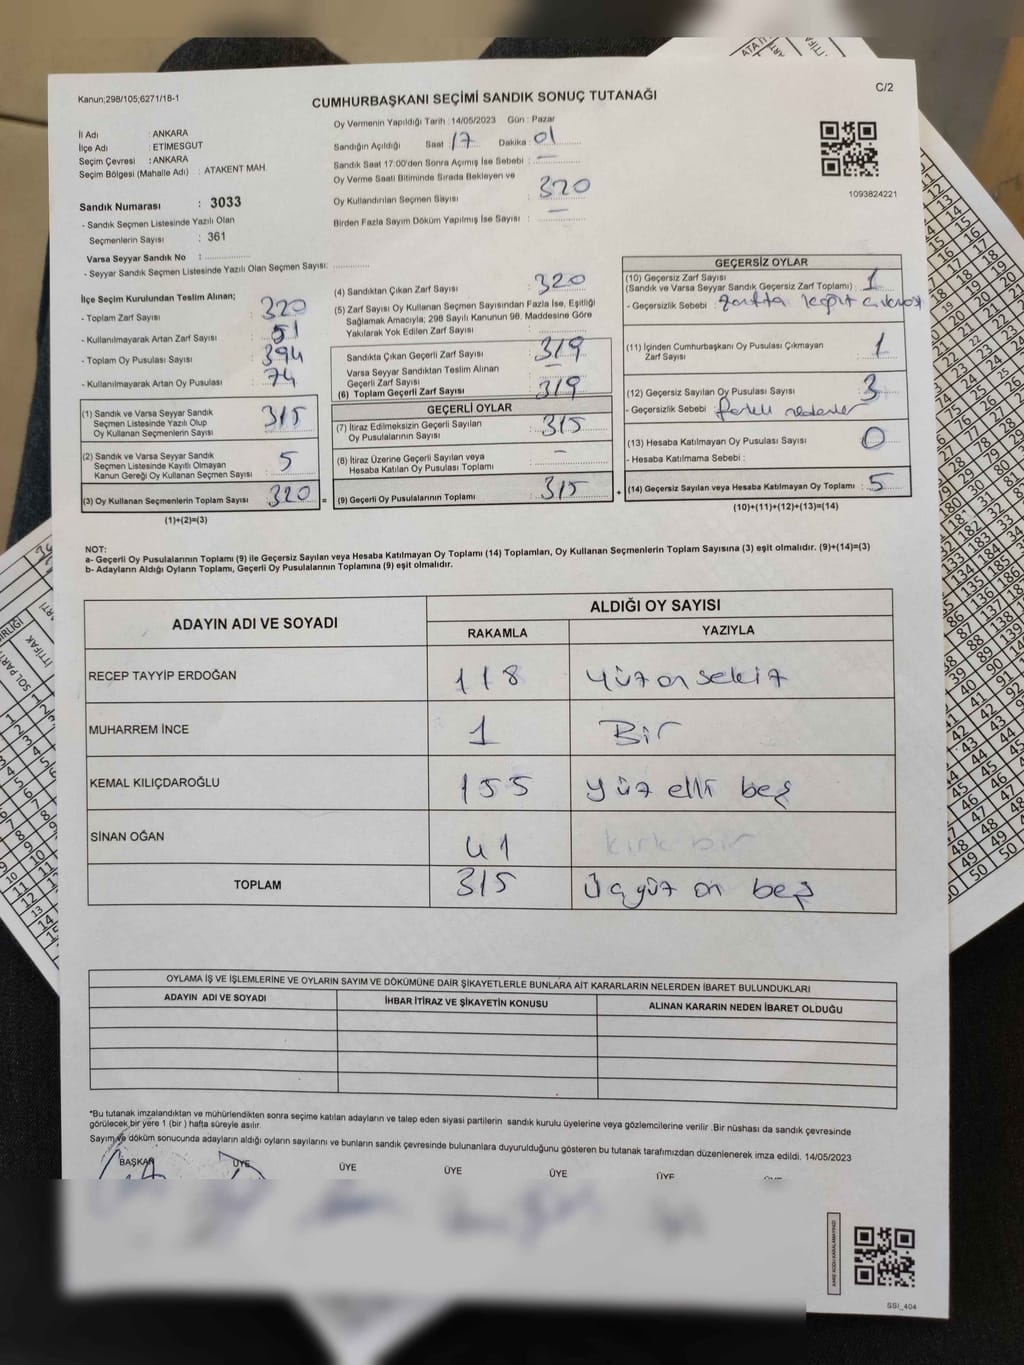 Kanun;298/105;6271/18-1
C/2
CUMHURBAŞKANI SEÇİMİ SANDIK SONUÇ TUTANAĞI
İl Adı : ANKARA
İlçe Adı : ETİMESGUT
Seçim Çevresi : ANKARA
Seçim Bölgesi (Mahalle Adı) : ATAKENT MAH.
Sandık Numarası : 3033
- Sandık Seçmen Listesinde Yazılı Olan
Seçmenlerin Sayısı : 361
Varsa Seyyar Sandık No :
- Seyyar Sandık Seçmen Listesinde Yazılı Olan Seçmen Sayısı:
Oy Vermenin Yapıldığı Tarih : 14/05/2023 Gün : Pazar
Sandığın Açıldığı Saat : 17 Dakika : 01
Sandık Saat 17:00'den Sonra Açımış İse Sebebi : —
Oy Verme Saati Bitiminde Sırada Bekleyen ve
Oy Kullandırılan Seçmen Sayısı : 320
Birden Fazla Sayım Döküm Yapılmış İse Sayısı : —
1093824221
İlçe Seçim Kurulundan Teslim Alınan;
- Toplam Zarf Sayısı : 320
- Kullanılmayarak Artan Zarf Sayısı : 51
- Toplam Oy Pusulası Sayısı : 394
- Kullanılmayarak Artan Oy Pusulası : 74
(1) Sandık ve Varsa Seyyar Sandık
Seçmen Listesinde Yazılı Olup
Oy Kullanan Seçmenlerin Sayısı : 315
(2) Sandık ve Varsa Seyyar Sandık
Seçmen Listesinde Kayıtlı Olmayan
Kanun Gereği Oy Kullanan Seçmen Sayısı : 5
(3) Oy Kullanan Seçmenlerin Toplam Sayısı : 320 =
(1)+(2)=(3)
(4) Sandıktan Çıkan Zarf Sayısı : 320
(5) Zarf Sayısı Oy Kullanan Seçmen Sayısından Fazla İse, Eşitliği
Sağlamak Amacıyla; 298 Sayılı Kanunun 98. Maddesine Göre
Yakılarak Yok Edilen Zarf Sayısı :
Sandıkta Çıkan Geçerli Zarf Sayısı : 319
Varsa Seyyar Sandıktan Teslim Alınan
Geçerli Zarf Sayısı : —
(6) Toplam Geçerli Zarf Sayısı : 319
GEÇERLİ OYLAR
(7) İtiraz Edilmeksizin Geçerli Sayılan
Oy Pusulasının Sayısı : 315
(8) İtiraz Üzerine Geçerli Sayılan veya
Hesaba Katılan Oy Pusulası Toplamı : —
(9) Geçerli Oy Pusulalarının Toplamı : 315 +
GEÇERSİZ OYLAR
(10) Geçersiz Zarf Sayısı
(Sandık ve Varsa Seyyar Sandık Geçersiz Zarf Toplamı) : 1
- Geçersizlik Sebebi : zarfta
(11) İçinden Cumhurbaşkanı Oy Pusulası Çıkmayan
Zarf Sayısı : 1
(12) Geçersiz Sayılan Oy Pusulası Sayısı : 3
- Geçersizlik Sebebi : farklı nedenler
(13) Hesaba Katılmayan Oy Pusulası Sayısı : 0
- Hesaba Katılmama Sebebi :
(14) Geçersiz Sayılan veya Hesaba Katılmayan Oy Toplamı : 5
(10)+(11)+(12)+(13)=(14)
NOT:
a- Geçerli Oy Pusulalarının Toplamı (9) ile Geçersiz Sayılan veya Hesaba Katılmayan Oy Toplamı (14) Toplamları, Oy Kullanan Seçmenlerin Toplam Sayısına (3) eşit olmalıdır. (9)+(14)=(3)
b- Adayların Aldığı Oyların Toplamı, Geçerli Oy Pusulalarının Toplamına (9) eşit olmalıdır.
ADAYIN ADI VE SOYADI ALDIĞI OY SAYISI
RAKAMLA YAZIYLA
RECEP TAYYİP ERDOĞAN 118 Yüz on sekiz
MUHARREM İNCE 1 Bir
KEMAL KILIÇDAROĞLU 155 yüz elli beş
SİNAN OĞAN 41 kırk bir
TOPLAM 315 Üçyüz on beş
OYLAMA İŞ VE İŞLEMLERİNE VE OYLARIN SAYIM VE DÖKÜMÜNE DAİR ŞİKAYETLERLE BUNLARA AİT KARARLARIN NELERDEN İBARET BULUNDUKLARI
ADAYIN ADI VE SOYADI İHBAR İTİRAZ VE ŞİKAYETİN KONUSU ALINAN KARARIN NEDEN İBARET OLDUĞU
*Bu tutanak imzalandıktan ve mühürlendikten sonra seçime katılan adayların ve talep eden siyasi partilerin sandık kurulu üyelerine veya gözlemcilerine verilir .Bir nüshası da sandık çevresinde
görülecek bir yere 1 (bir ) hafta süreyle asılır.
Sayım ve döküm sonucunda adayların aldığı oyların sayılarını ve bunların sandık çevresinde bulunanlara duyurulduğunu gösteren bu tutanak tarafımızdan düzenlenerek imza edildi. 14/05/2023
BAŞKAN ÜYE ÜYE ÜYE ÜYE ÜYE ÜYE
SSI_404